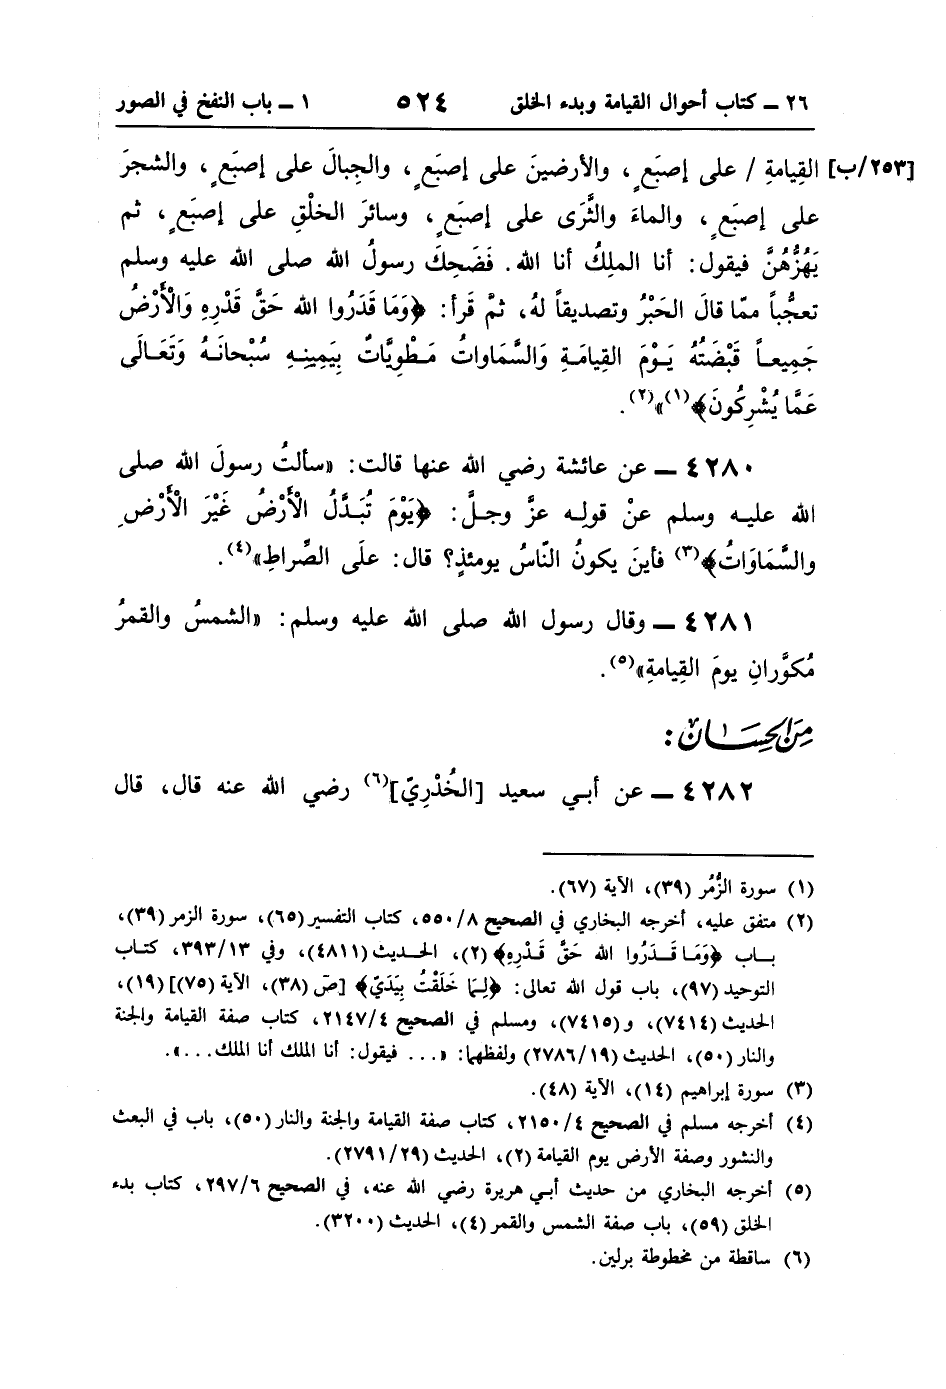 ٢٦ ـ كتاب أحوال القيامة وبدء الخلق ٥٢٤ ١ ـ باب النفخ في الصور
[٢٥٣/ب] القِيامةِ / على إصبَعٍ، والأرضينَ على إصبَعٍ، والجِبالَ على إصبَعٍ، والشجرَ
على إصبَعٍ، والماءَ والثَّرَى على إصبَعٍ، وسائرَ الخلْقِ على إصبَعٍ، ثم
يَهُزُّهُنَّ فيقول: أنا الملِكُ أنا الله. فَضَحِكَ رسولُ الله صلى الله عليه وسلم
تعجُّباً ممّا قالَ الحَبْرُ وتصديقاً لهُ، ثمَّ قَرأَ: ﴿وَمَا قَدَرُوا الله حَقَّ قَدْرِهِ وَالْأَرْضُ
جَمِيعاً قَبْضَتُهُ يَوْمَ القِيامَةِ وَالسَّمَاواتُ مَطْوِيَّاتٌ بِيَمِينِهِ سُبْحانَهُ وَتَعَالَى
عَمَّا يُشْرِكُونَ﴾(١)»(٢).
٤٢٨٠ ـ عن عائشة رضي الله عنها قالت: «سألتُ رسولَ الله صلى
الله عليه وسلم عنْ قولِه عزَّ وجلَّ: ﴿يَوْمَ تُبَدَّلُ الْأَرْضُ غَيْرَ الْأَرْضِ
والسَّمَاوَاتُ﴾(٣) فأينَ يكونُ النّاسُ يومئذٍ؟ قال: علَى الصِّراطِ»(٤).
٤٢٨١ ـ وقال رسول الله صلى الله عليه وسلم: «الشمسُ والقمرُ
مُكوَّرانِ يومَ القِيامةِ»(٥).
مِنَ الحِسَان:
٤٢٨٢ ـ عن أبي سعيد [الخُدْرِيّ](٦) رضي الله عنه قال، قال
(١) سورة الزُّمُر (٣٩)، الآية (٦٧).
(٢) متفق عليه، أخرجه البخاري في الصحيح ٥٥٠/٨، كتاب التفسير (٦٥)، سورة الزمر (٣٩)،
باب ﴿وَمَا قَدَرُوا الله حَقَّ قَدْرِهِ﴾ (٢)، الحديث (٤٨١١)، وفي ٣٩٣/١٣، كتاب
التوحيد (٩٧)، باب قول الله تعالى: ﴿لِمَا خَلَقْتُ بِيَدَيَّ﴾ [صّ (٣٨)، الآية (٧٥)] (١٩)،
الحديث (٧٤١٤)، و(٧٤١٥)، ومسلم في الصحيح ٢١٤٧/٤، كتاب صفة القيامة والجنة
والنار (٥٠)، الحديث (٢٧٨٦/١٩) ولفظهما: «... فيقول: أنا الملك أنا الملك...».
(٣) سورة إبراهيم (١٤)، الآية (٤٨).
(٤) أخرجه مسلم في الصحيح ٢١٥٠/٤، كتاب صفة القيامة والجنة والنار (٥٠)، باب في البعث
والنشور وصفة الأرض يوم القيامة (٢)، الحديث (٢٧٩١/٢٩).
(٥) أخرجه البخاري من حديث أبي هريرة رضي الله عنه، في الصحيح ٢٩٧/٦، كتاب بدء
الخلق (٥٩)، باب صفة الشمس والقمر (٤)، الحديث (٣٢٠٠).
(٦) ساقطة من مخطوطة برلين.